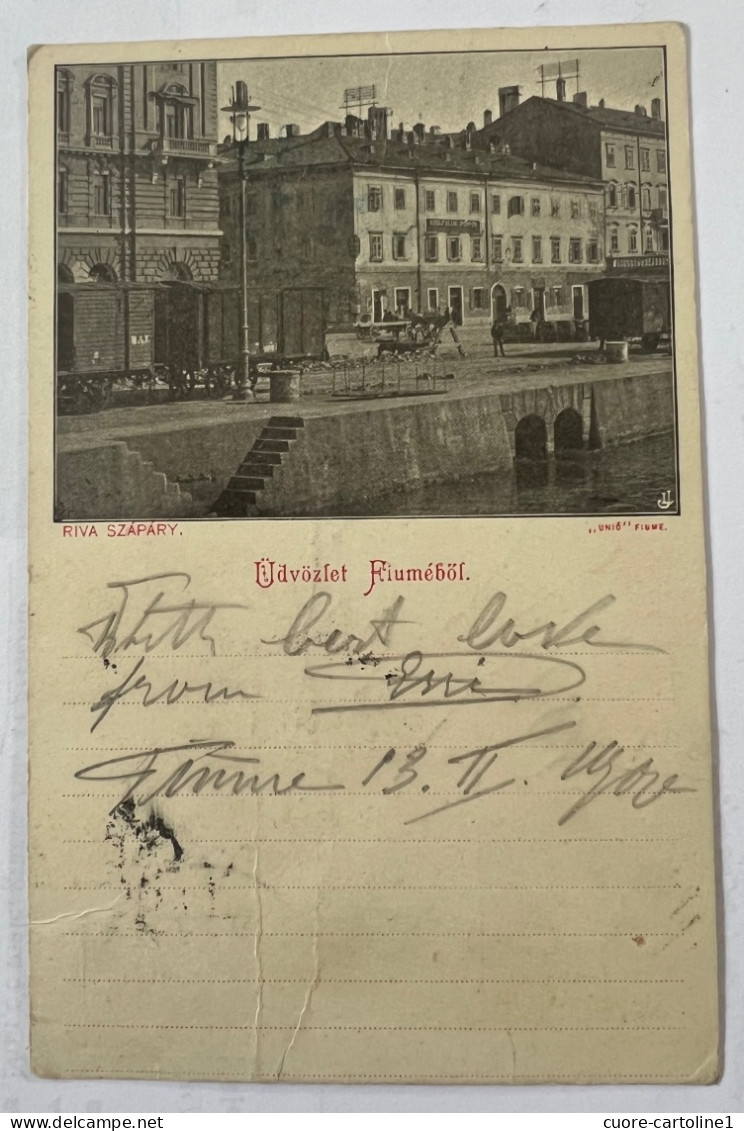 RIVA SZÁPÁRY.
„UNIÓ” FIUME.
Üdvözlet Fiuméből.
With best love
from
Fiume 13. II. 1902
cuore-cartoline1